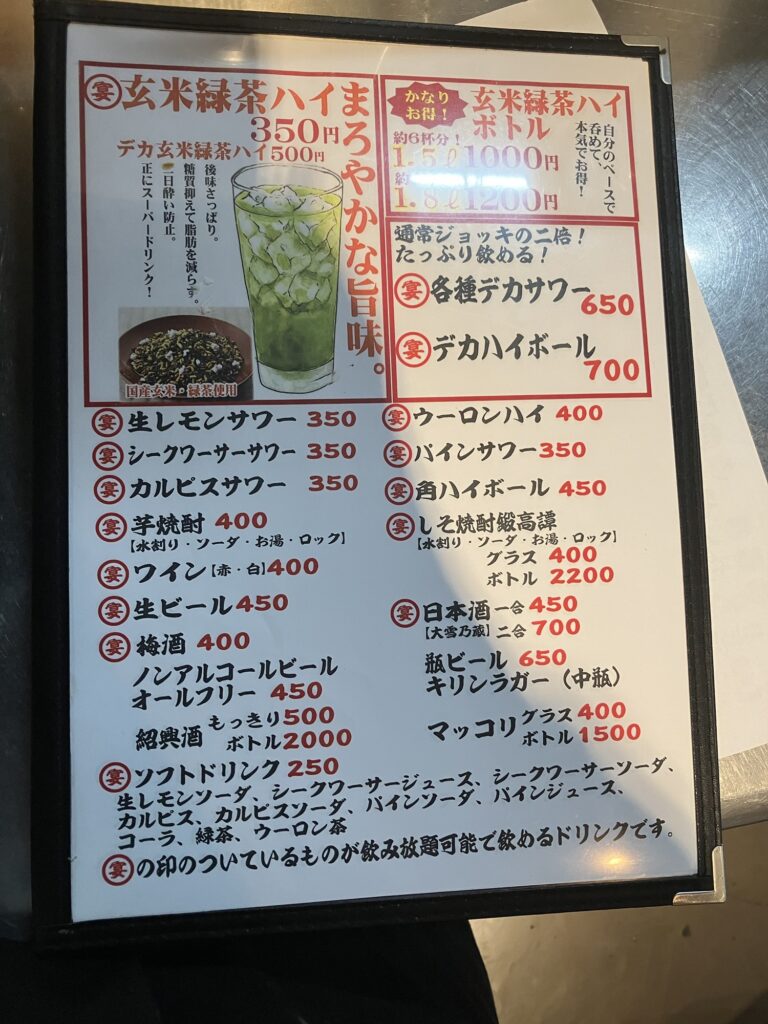 宴玄米緑茶ハイ
350円
デカ玄米緑茶ハイ500円
まろやかな旨味。
後味さっぱり。
糖質抑えて脂肪を減らす。
二日酔い防止。
正にスーパードリンク!
国産玄米・緑茶使用
かなり
お得!
玄米緑茶ハイ
ボトル
約6杯分!
1.5ℓ1000円
約
1.8ℓ1200円
自分のペースで
呑めて、
本気でお得!
通常ジョッキの二倍!
たっぷり飲める!
宴各種デカサワー
650
宴デカハイボール
700
宴生レモンサワー 350
宴シークワーサーサワー 350
宴カルピスサワー 350
宴芋焼酎 400
【水割り・ソーダ・お湯・ロック】
宴ワイン【赤・白】400
宴生ビール450
宴梅酒 400
ノンアルコールビール
オールフリー 450
紹興酒 もっきり500
ボトル2000
宴ウーロンハイ 400
宴パインサワー350
宴角ハイボール 450
宴しそ焼酎鍛高譚
【水割り・ソーダ・お湯・ロック】
グラス 400
ボトル 2200
宴日本酒 一合 450
【大雪乃蔵】二合 700
瓶ビール 650
キリンラガー(中瓶)
マッコリ グラス400
ボトル1500
宴ソフトドリンク 250
生レモンソーダ、シークワーサージュース、シークワーサーソーダ、
カルピス、カルピスソーダ、パインソーダ、パインジュース、
コーラ、緑茶、ウーロン茶
宴の印のついているものが飲み放題可能で飲めるドリンクです。